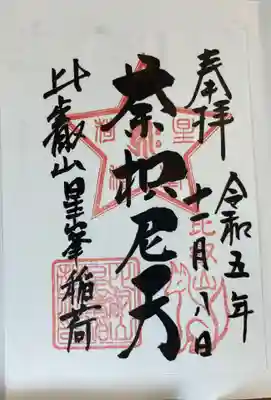 奉拝
令和五年
十一月八日
荼枳尼天
比叡山星峯稲荷